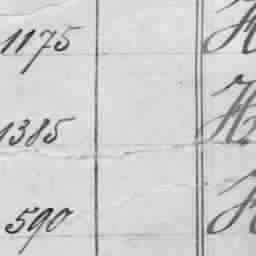 1175 H
1385 H
590 H